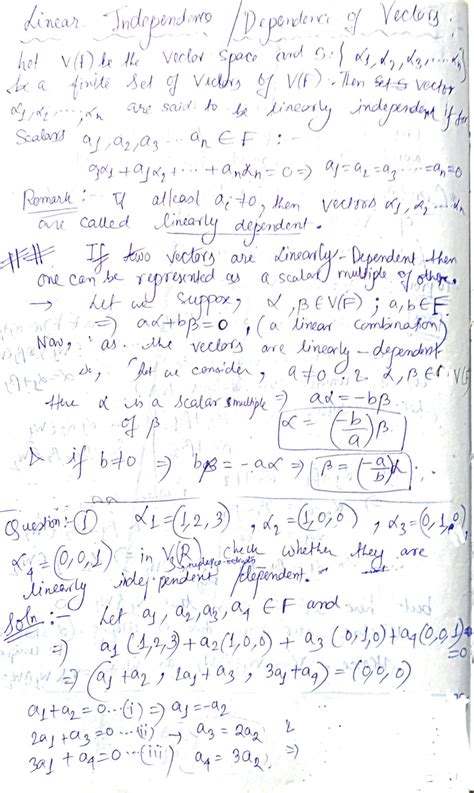 Linear Independence / Dependence of Vectors:
Let V(F) be the vector space and S: {α1, α2, α3, ... αn}
be a finite set of vectors of V(F). Then vector
α1, α2, ..., αn are said to be linearly independent if for
Scalars a1, a2, a3 ... an ∈ F :-
a1α1 + a1α2 + ... + anαn = 0 => a1 = a2 = a3 ... = an = 0
Remark:- If atleast ai ≠ 0, then vectors α1, α2 ... αn
are called linearly dependent.
If two vectors are Linearly-Dependent then
one can be represented as a scalar multiple of other.
→ Let we suppose, α, β ∈ V(F) ; a, b ∈ F.
=> aα + bβ = 0, (a linear combination)
Now, as the vectors are linearly-dependent
let we consider, a ≠ 0, α, β ∈
Here α is a scalar multiple => aα = -bβ
of β α = (-b/a)β
if b ≠ 0 => bβ = -aα => β = (-a/b)α
Question:- ① α1 = (1, 2, 3), α2 = (1, 0, 0), α3 = (0, 1, 0),
α4 = (0, 0, 1) in V3(R) check whether they are
linearly independent / dependent.
Soln:- Let a1, a2, a3, a4 ∈ F and
=> a1(1,2,3) + a2(1,0,0) + a3(0,1,0) + a4(0,0,1)
=0
=> (a1 + a2, 2a1 + a3, 3a1 + a4) = (0,0,0)
a1 + a2 = 0 ...(i) => a1 = -a2
2a1 + a3 = 0 ...(ii) → a3 = 2a2
3a1 + a4 = 0 ...(iii) a4 = 3a2 =>